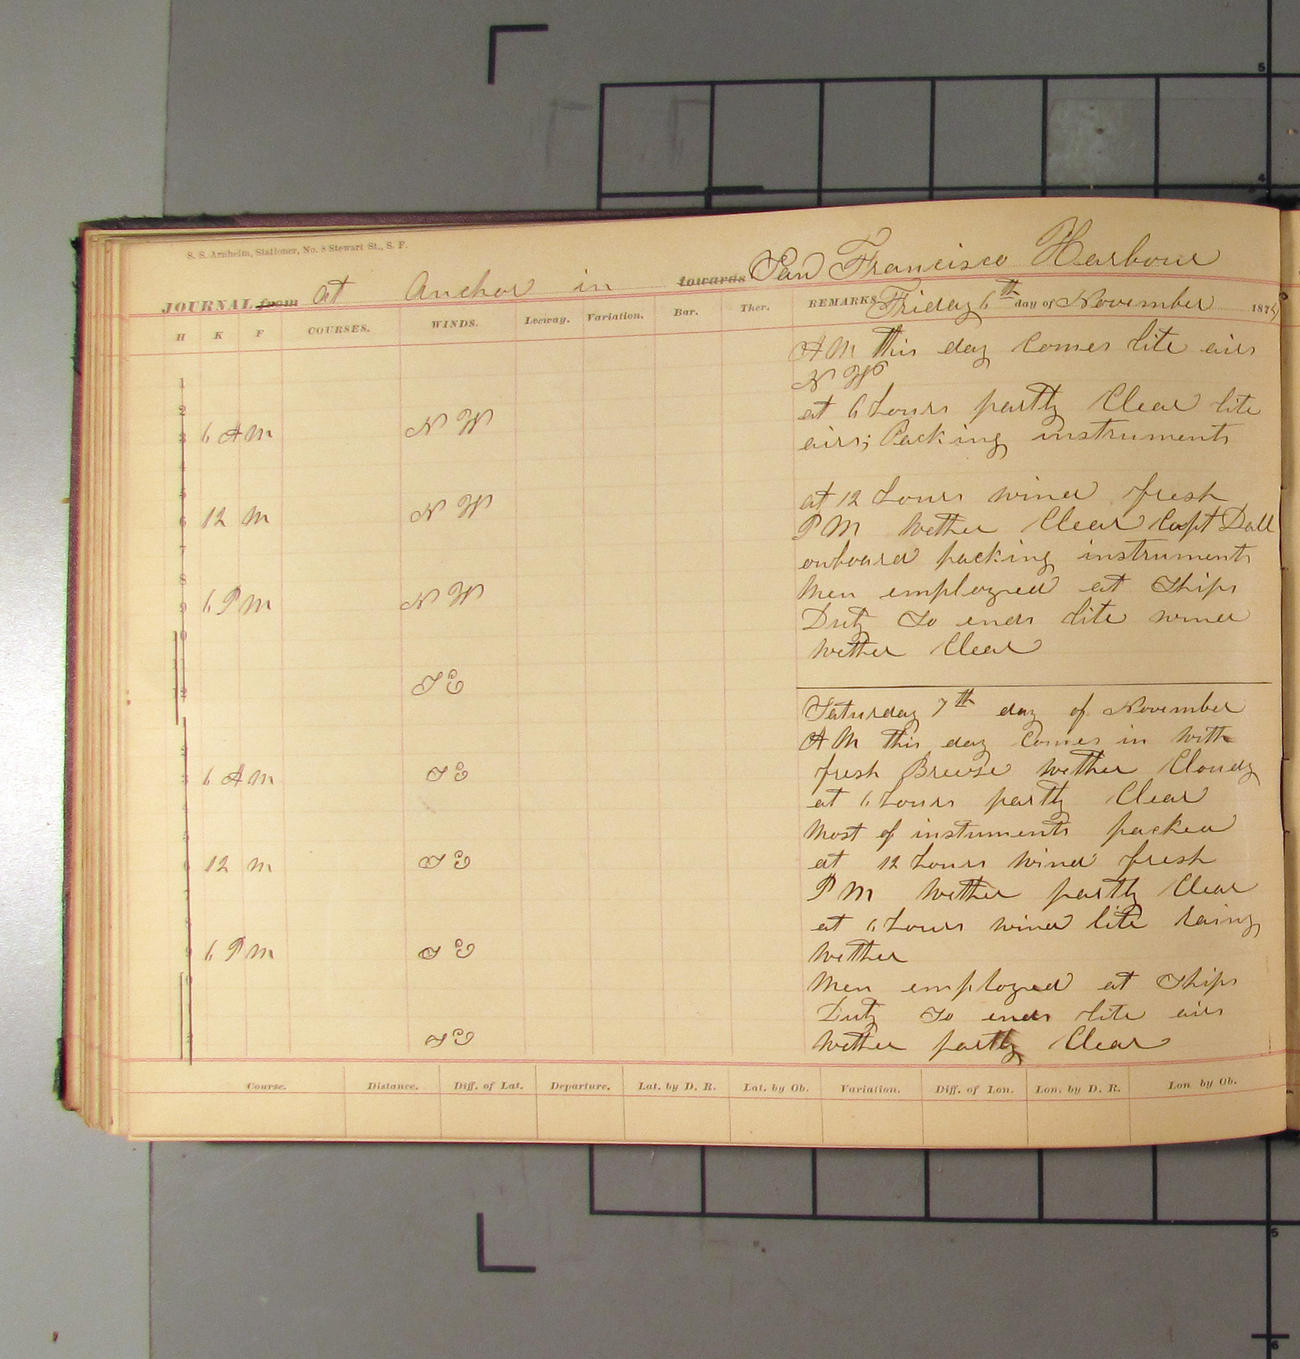 S. S. Arnheim, Stationer, No. 8 Stewart St., S. F.
JOURNAL from at Anchor in towards San Francisco Harbour
H K F COURSES. WINDS. Leeway. Variation. Bar. Ther. REMARKS, Friday 6th day of November 187
AM this day Comes lite airs
N W
1
2 at 6 hours partly Clear lite
3 6 AM N W airs; Packing instruments
4
5 at 12 hours wind fresh
6 12 M N W PM Wether Clear Capt Dall
7 onboard packing instruments
8 Men employed at Ships
9 6 PM N W Duty So ends lite wind
10 Wether Clear
12 S E
Saturday 7th day of November
AM this day Comes in With
2 fresh Breese Wether Cloudy
3 6 AM S E at 6 hours partly Clear
4 Most of instuments packed
5 at 12 hours Wind fresh
6 12 M S E PM Wether partly Clear
7 at 6 hours wind lite rainy
8 Wether
9 6 PM S E Men employed at Ships
10 Duty So ends lite airs
S E Wether partly Clear
Course. Distance. Diff. of Lat. Departure. Lat. by D. R. Lat. by Ob. Variation. Diff. of Lon. Lon. by D. R. Lon. by Ob.
5
4
5
6